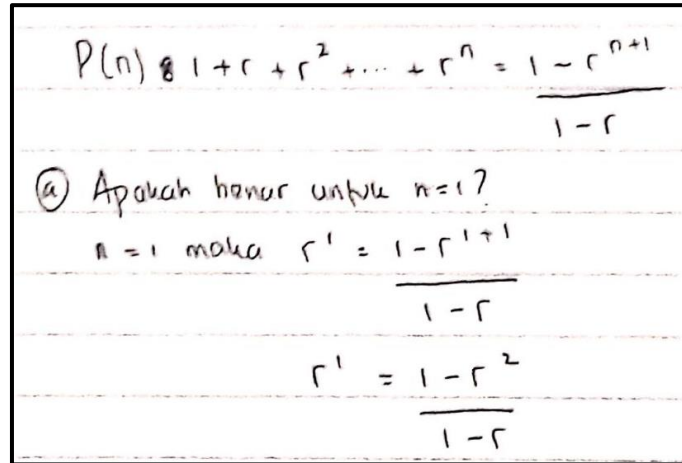 P(n) : 1 + r + r² + ... + rⁿ = (1 - rⁿ⁺¹)/(1 - r)
ⓐ Apakah benar untuk n=1?
n = 1 maka r¹ = (1 - r¹⁺¹)/(1 - r)
r¹ = (1 - r²)/(1 - r)